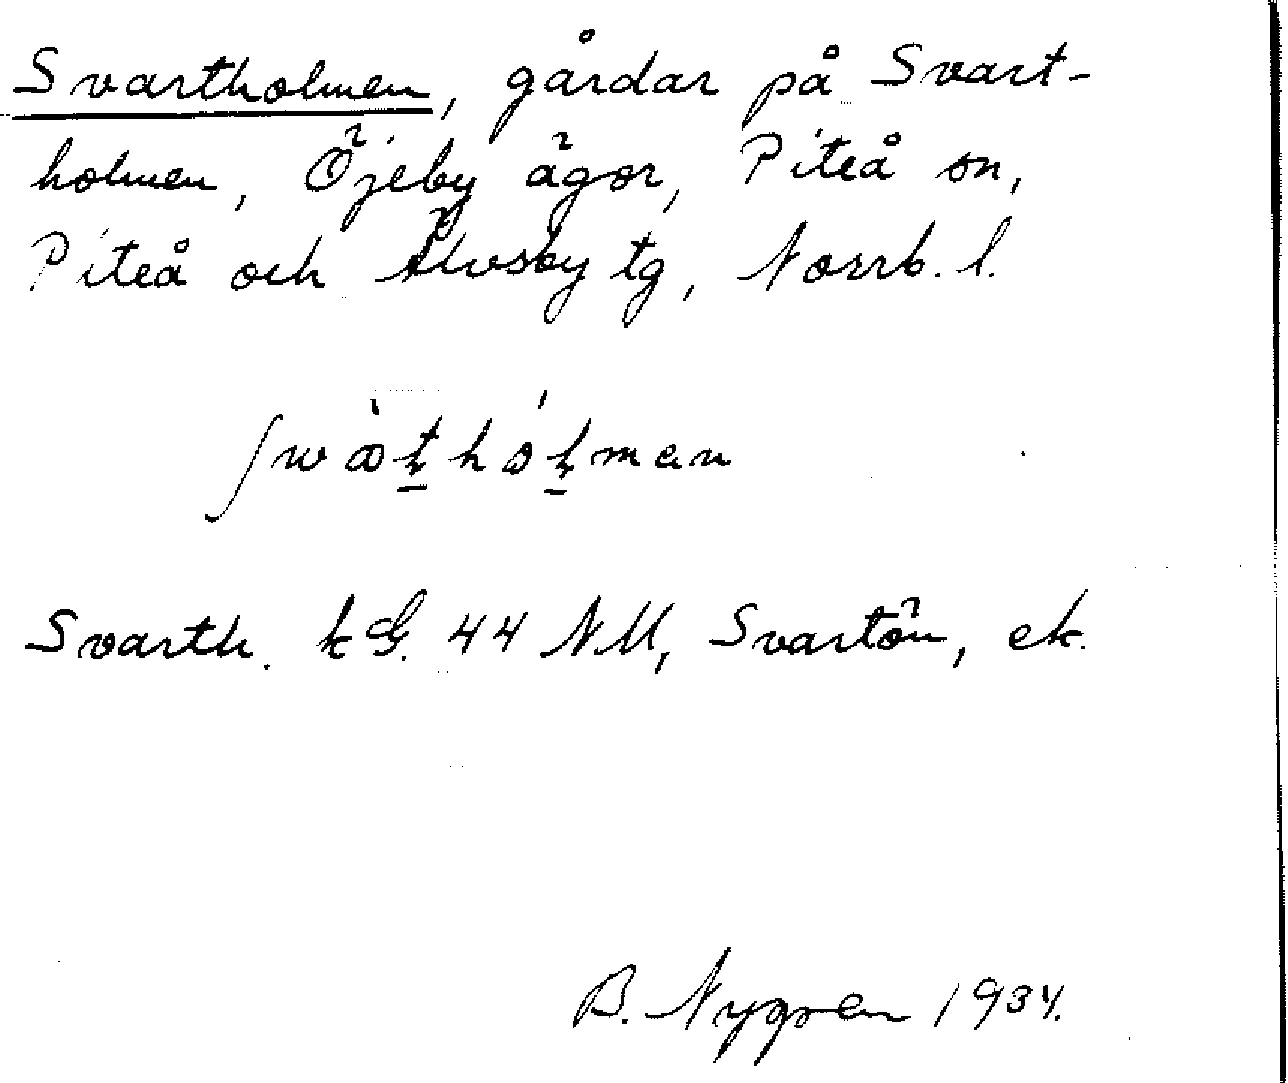 Svartholmen, gårdar på Svart-
holmen, Öjeby ägor, Piteå sn,
Piteå och Älvsby tg, Norrb. l.
Svarth. kG. 44 NM, Svartön, ek.
B. Nygren 1934.